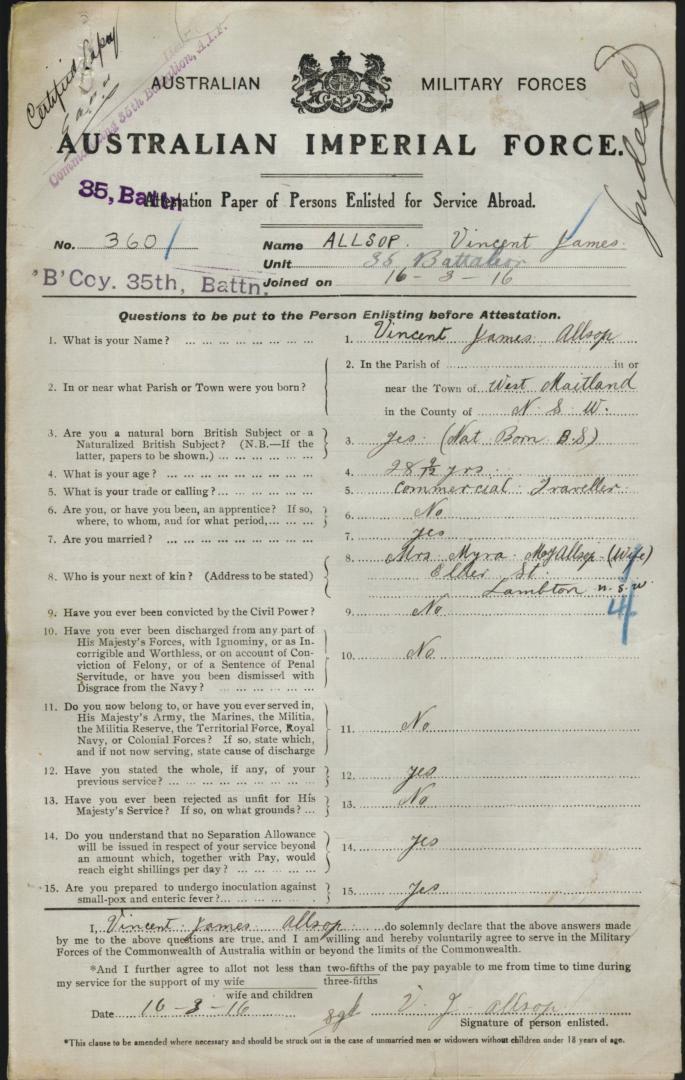 Certified Copy
Commanding 35th Battalion, A.I.F.
Indexed
AUSTRALIAN MILITARY FORCES
AUSTRALIAN IMPERIAL FORCE.
35, Battn
Attestation Paper of Persons Enlisted for Service Abroad.
No. 3601
Name ALLSOP. Vincent James.
Unit 35 Battalion
'B' Coy. 35th, Battn.
Joined on 16-3-16
Questions to be put to the Person Enlisting before Attestation.
1. What is your Name? ... 1. Vincent James Allsop
2. In or near what Parish or Town were you born? 2. In the Parish of ... in or
near the Town of West Maitland
in the County of N. S. W.
3. Are you a natural born British Subject or a
Naturalized British Subject? (N.B.—If the
latter, papers to be shown.) ... 3. Yes. (Nat Born B.S)
4. What is your age? ... 4. 28 9/12 yrs.
5. What is your trade or calling? ... 5. Commercial Traveller.
6. Are you, or have you been, an apprentice? If so,
where, to whom, and for what period, ... 6. No
7. Are you married? ... 7. Yes
8. Who is your next of kin? (Address to be stated) 8. Mrs Myra May Allsop (Wife)
Elder St.
Lambton N.S.W.
4
9. Have you ever been convicted by the Civil Power? 9. No
10. Have you ever been discharged from any part of
His Majesty's Forces, with Ignominy, or as In-
corrigible and Worthless, or on account of Con-
viction of Felony, or of a Sentence of Penal
Servitude, or have you been dismissed with
Disgrace from the Navy? ... 10. No
11. Do you now belong to, or have you ever served in,
His Majesty's Army, the Marines, the Militia,
the Militia Reserve, the Territorial Force, Royal
Navy, or Colonial Forces? If so, state which,
and if not now serving, state cause of discharge 11. No
12. Have you stated the whole, if any, of your
previous service? ... 12. Yes
13. Have you ever been rejected as unfit for His
Majesty's Service? If so, on what grounds? ... 13. No
14. Do you understand that no Separation Allowance
will be issued in respect of your service beyond
an amount which, together with Pay, would
reach eight shillings per day? ... 14. Yes
15. Are you prepared to undergo inoculation against
small-pox and enteric fever? ... 15. Yes
I, Vincent James Allsop do solemnly declare that the above answers made
by me to the above questions are true, and I am willing and hereby voluntarily agree to serve in the Military
Forces of the Commonwealth of Australia within or beyond the limits of the Commonwealth.
*And I further agree to allot not less than two-fifths of the pay payable to me from time to time during
three-fifths
my service for the support of my wife
wife and children
Date 16-3-16 sgd V. J. Allsop
Signature of person enlisted.
*This clause to be amended where necessary and should be struck out in the case of unmarried men or widowers without children under 18 years of age.